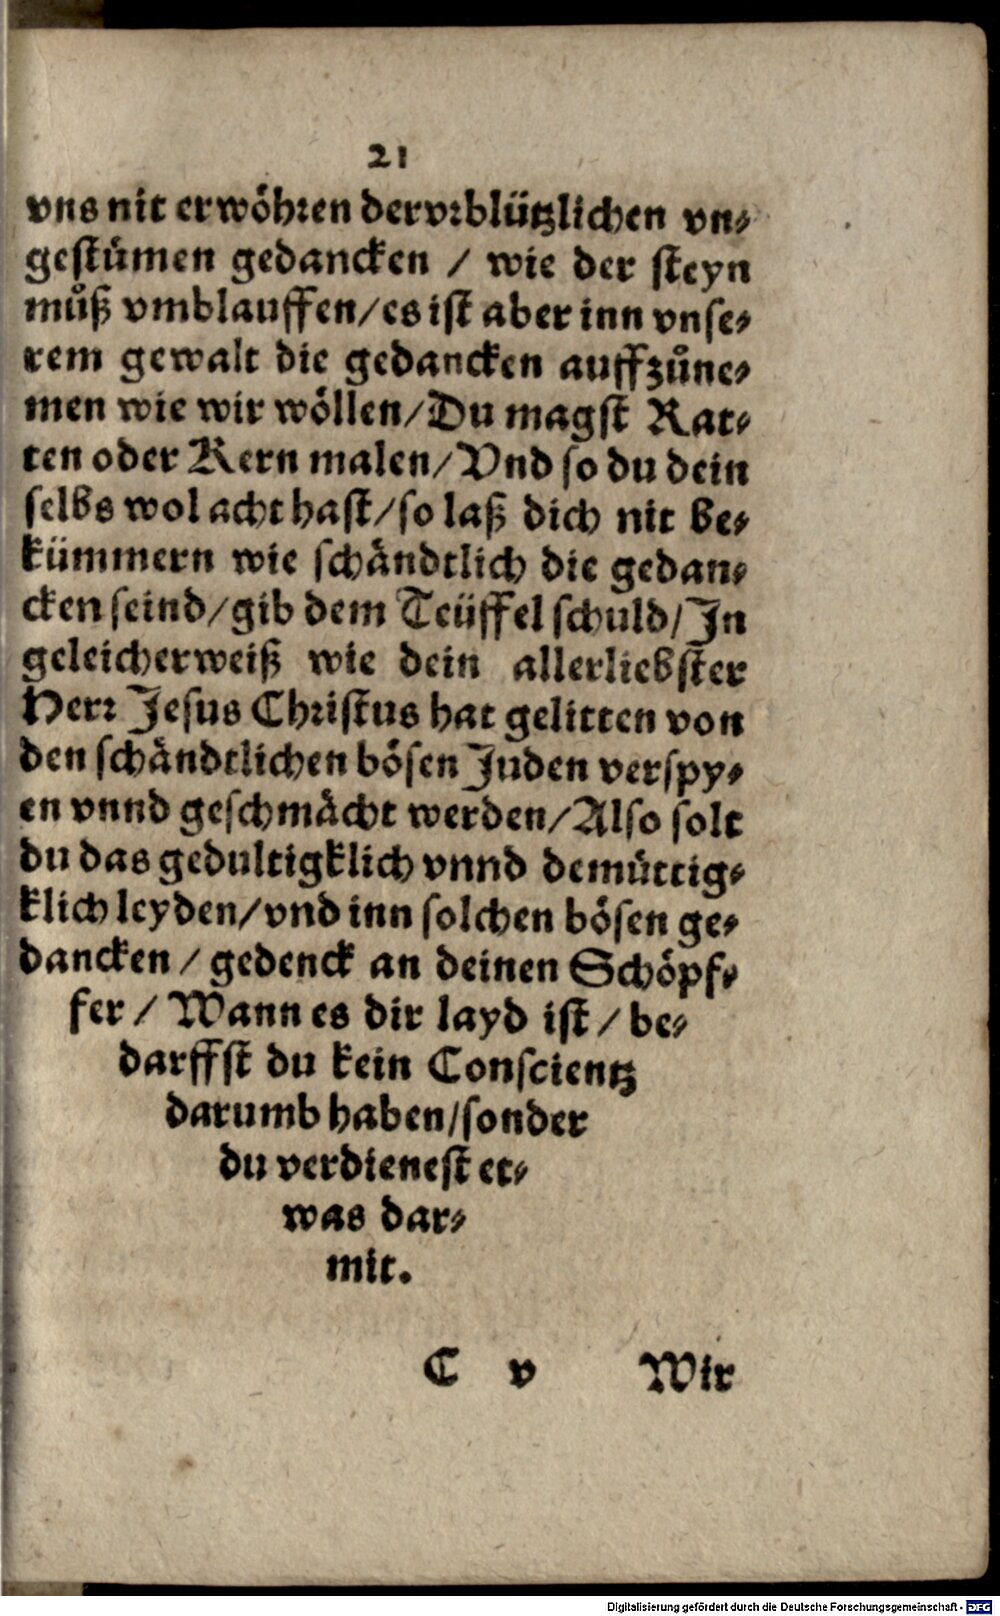 21
vns nit erwöhren der vrblützlichen vn⸗
gestümen gedancken / wie der steyn
můß vmblauffen/es ist aber inn vnse⸗
rem gewalt die gedancken auffzůne⸗
men wie wir wöllen/Du magst Rat⸗
ten oder Kern malen/Vnd so du dein
selbs wol acht hast/so laß dich nit be⸗
kümmern wie schändtlich die gedan⸗
cken seind/gib dem Teüffel schuld/In
geleicherweiß wie dein allerliebster
Herr Jesus Christus hat gelitten von
den schändtlichen bösen Juden verspy⸗
en vnnd geschmächt werden/Also solt
du das gedultigklich vnnd demüttig⸗
klich leyden/vnd inn solchen bösen ge⸗
dancken / gedenck an deinen Schöpf⸗
fer / Wann es dir layd ist / be⸗
darffst du kein Conscientz
darumb haben/sonder
du verdienest et⸗
was dar⸗
mit.
C v Wir
Digitalisierung gefördert durch die Deutsche Forschungsgemeinschaft - DFG